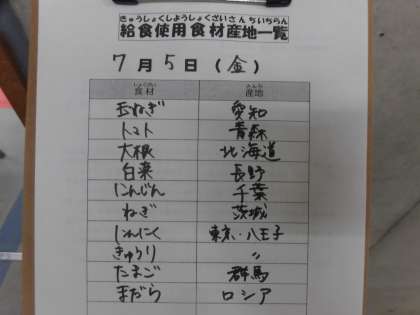 きゅうしょくしようしょくざいさんちいちらん
給食使用食材産地一覧
7月5日(金)
しょくざい さんち
食材 産地
玉ねぎ 愛知
トマト 青森
大根 北海道
白菜 長野
にんじん 千葉
ねぎ 茨城
にんにく 東京・八王子
きゅうり 〃
たまご 群馬
まだら ロシア